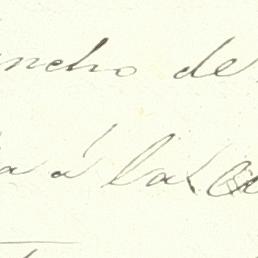 ncho de
a á la